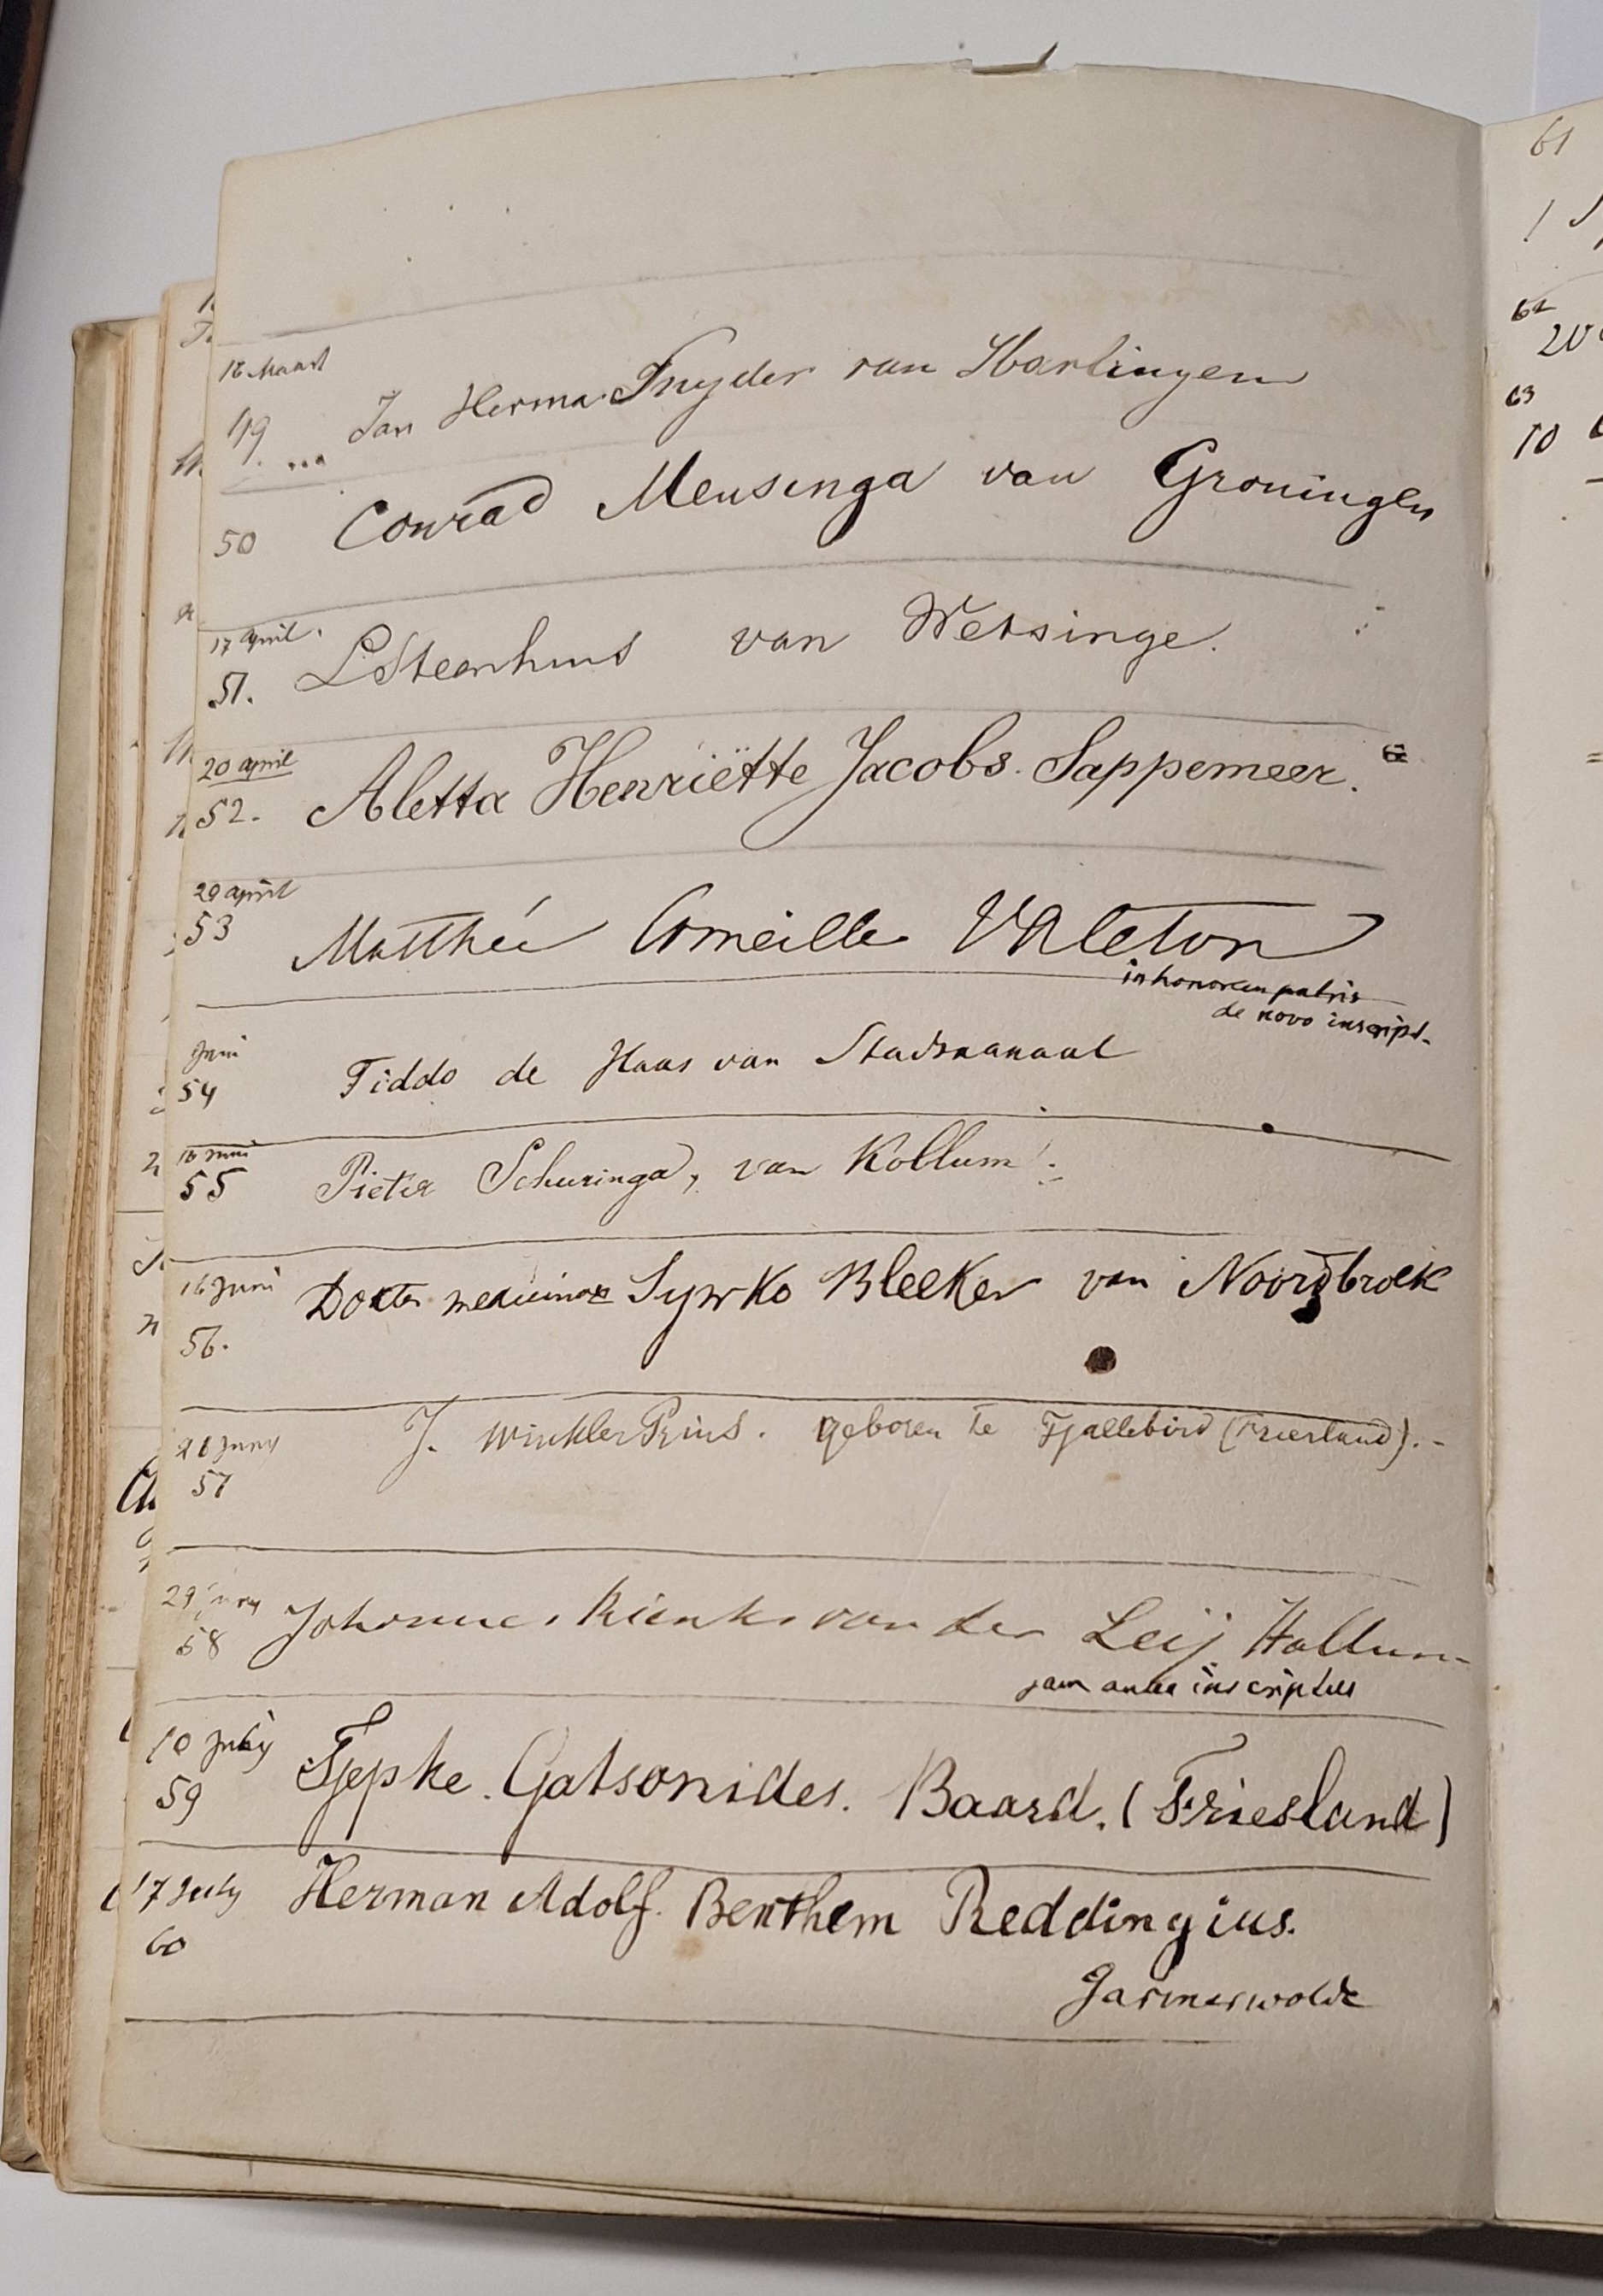 18 Maart
49 ... Jan Herma Snyder van Harlingen
50 Conrad Mensinga van Groningen
17 april.
51. L Steenhuis van Wetsinge.
20 april
52. Aletta Henriëtte Jacobs. Sappemeer.
29 april
53 Matthée Corneille Valeton
in honorem patris
de novo inscript.
Juni
54 Fiddo de Haas van Stadskanaal
16 Juni
55 Pieter Schuringa, van Kollum.
16 Juni
56. Doctor medicinae Sywko Bleeker van Noordbroek
28 Juny
57 J. Winkler Prins. geboren te Tjallebird (Friesland).-
29 Juny
58 Johannes Rienks van der Leij Hallum
jam antea inscriptus
10 July
59 Tjepke. Gatsonides. Baard. (Friesland)
17 July
60 Herman Adolf. Benthem Reddingius.
Garmerwolde
61
62
20
63
10